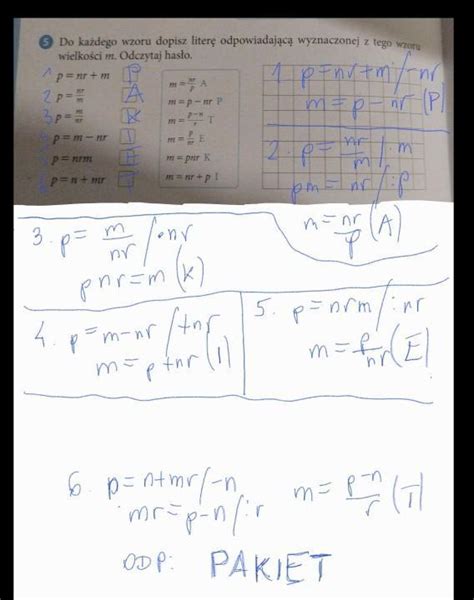 5 Do każdego wzoru dopisz literę odpowiadającą wyznaczonej z tego wzoru
wielkości m. Odczytaj hasło.
1 p = nr + m P
2 p = nr/m A
3 p = m/nr K
p = m − nr I
p = nrm E
p = n + mr T
m = nr/p A
m = p − nr P
m = p−n/r T
m = p/nr E
m = pnr K
m = nr + p I
1. p = nr + m /−nr
m = p − nr (P)
2. p = nr/m /·m
pm = nr /:p
m = nr/p (A)
3. p = m/nr /·nr
pnr = m (K)
4. p = m − nr /+nr
m = p + nr (I)
5. p = nrm /:nr
m = p/nr (E)
6. p = n + mr /−n
mr = p − n /:r
m = p−n/r (T)
ODP: PAKIET